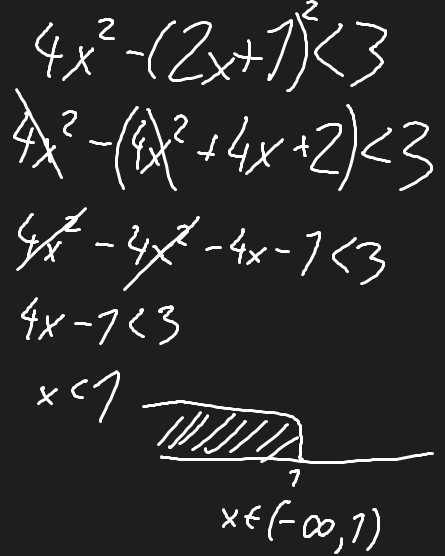 4x² - (2x+1)² < 3
4x² - (4x² + 4x + 2) < 3
4x² - 4x² - 4x - 1 < 3
4x - 1 < 3
x < 1
1
x ∈ (-∞, 1)